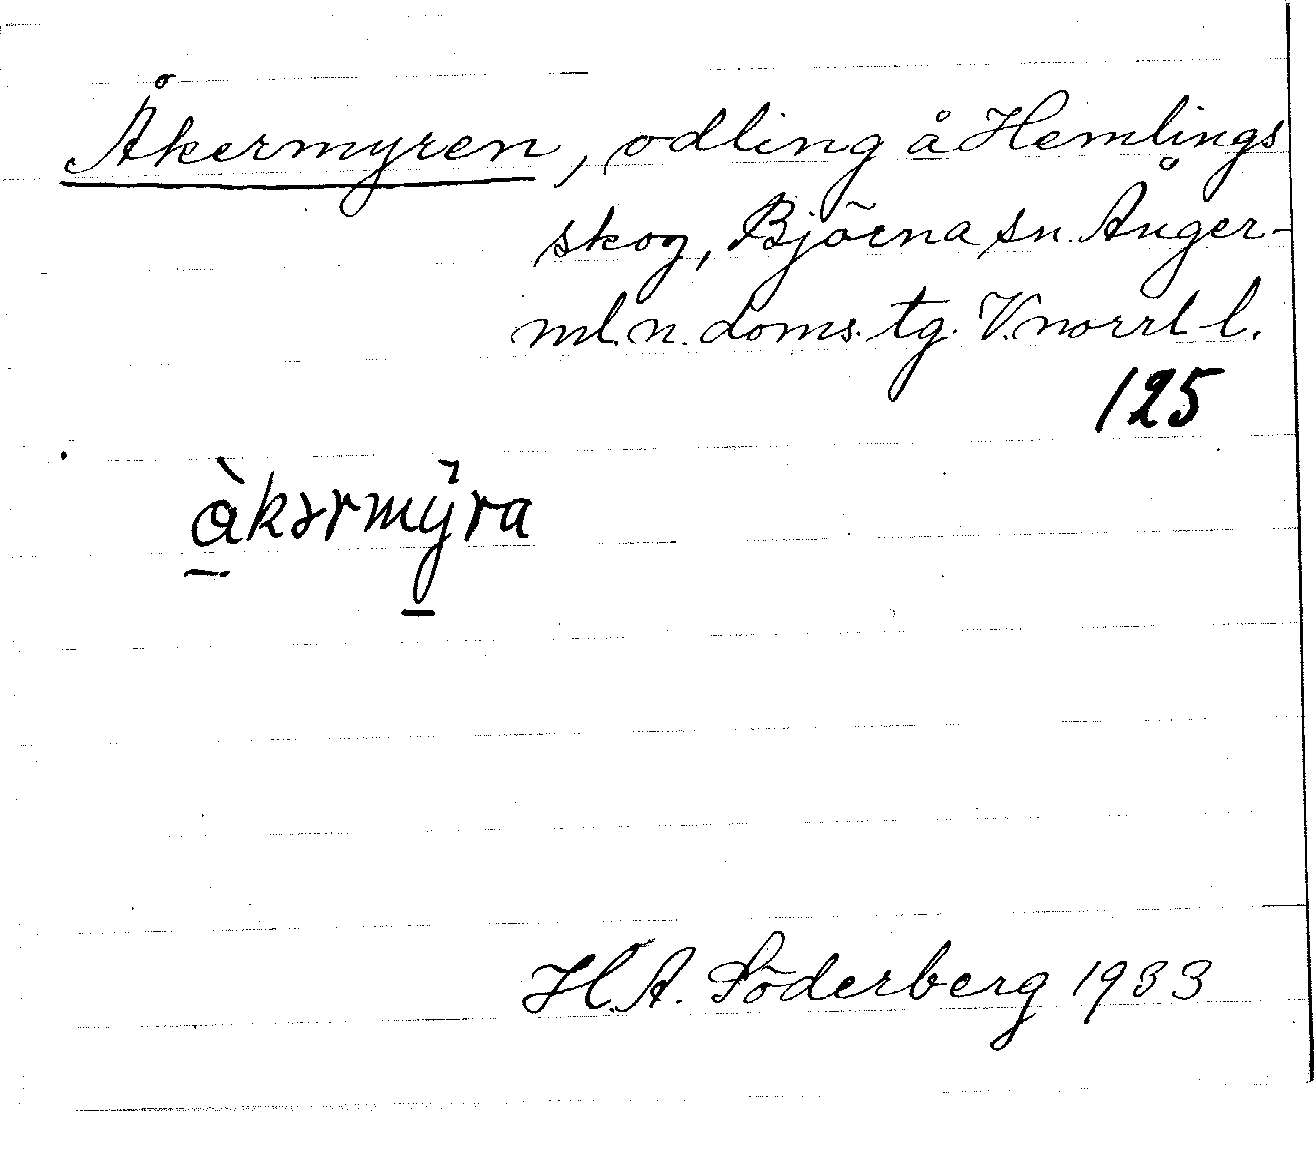 Åkermyren, odling å Hemlings
skog, Björna sn. Ånger-
ml. n. doms. tg. V.norrl. l.
125
àkərmy̆ra
H.A. Söderberg 1933